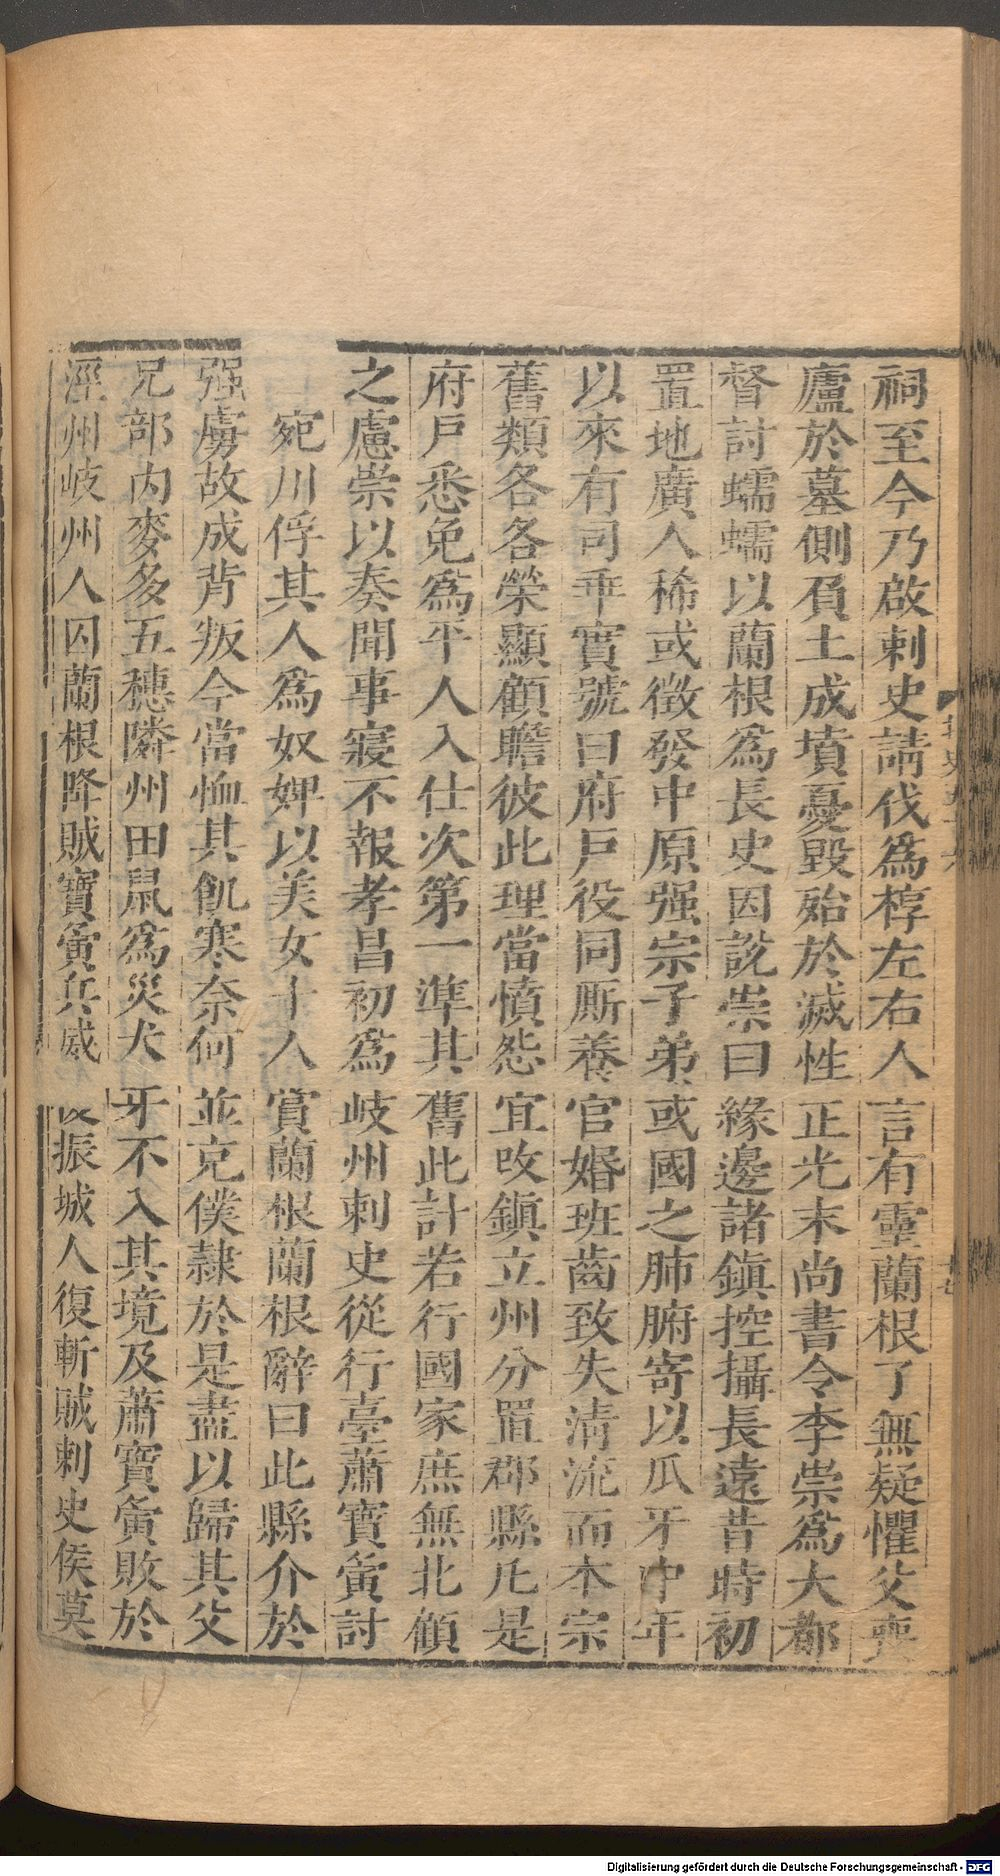 祠至今乃啟刺史請伐爲椁左右人言有靈蘭根了無疑懼父喪
廬於墓側負土成墳憂毀殆於滅性正光末尚書令李崇爲大都
督討蠕蠕以蘭根爲長史因說崇曰緣邊諸鎭控攝長遠昔時初
置地廣人稀或徵發中原强宗子弟或國之肺腑寄以爪牙中年
以來有司乖實號曰府戸役同厮養官婚班齒致失清流而本宗
舊類各各榮顯顧瞻彼此理當憤怨宜改鎭立州分置郡縣凡是
府戸悉免爲平人入仕次第一準其舊此計若行國家庶無北顧
之慮崇以奏聞事寢不報孝昌初爲岐州刺史從行臺蕭寶夤討
宛川俘其人爲奴婢以美女十人賞蘭根蘭根辭曰此縣介於
强虜故成背叛今當恤其飢寒奈何並克僕隷於是盡以歸其父
兄部内麥多五穗隣州田鼠爲災犬牙不入其境及蕭寶夤敗於
涇州岐州人囚蘭根降賊寶夤兵威㪅振城人復斬賊刺史侯莫
Digitalisierung gefördert durch die Deutsche Forschungsgemeinschaft - DFG